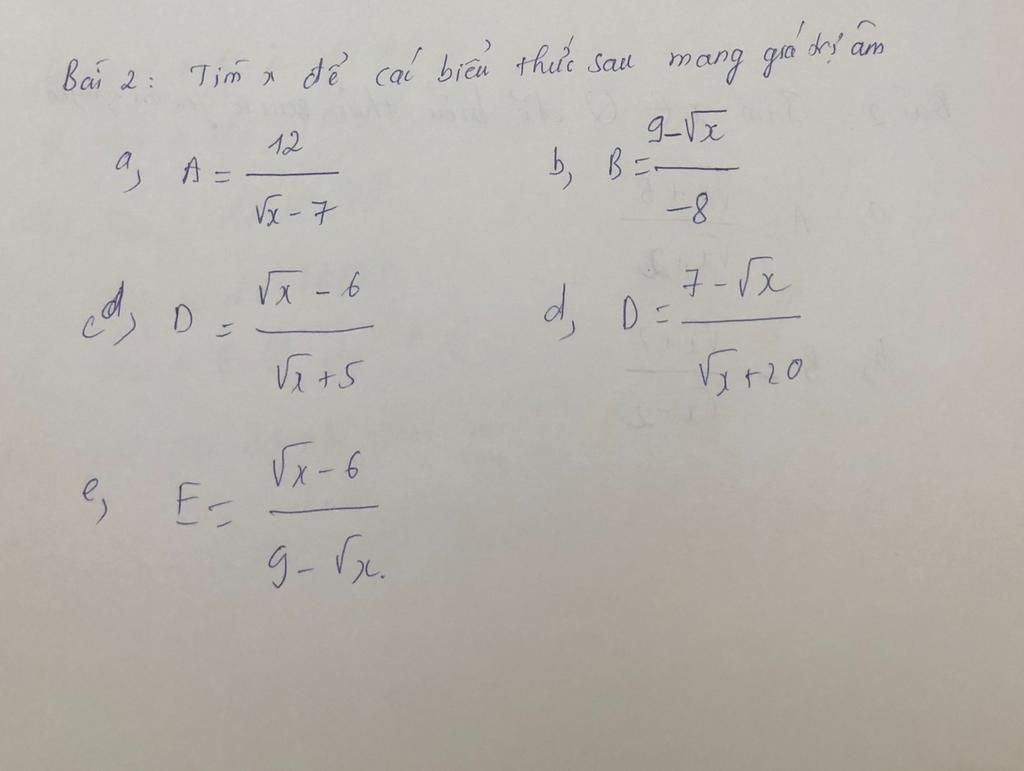 Bài 2: Tìm x để các biểu thức sau mang giá trị âm
a, A = 12 / (√x - 7)
b, B = (9 - √x) / -8
c d, D = (√x - 6) / (√x + 5)
d, D = (7 - √x) / (√x + 20)
e, E = (√x - 6) / (9 - √x).